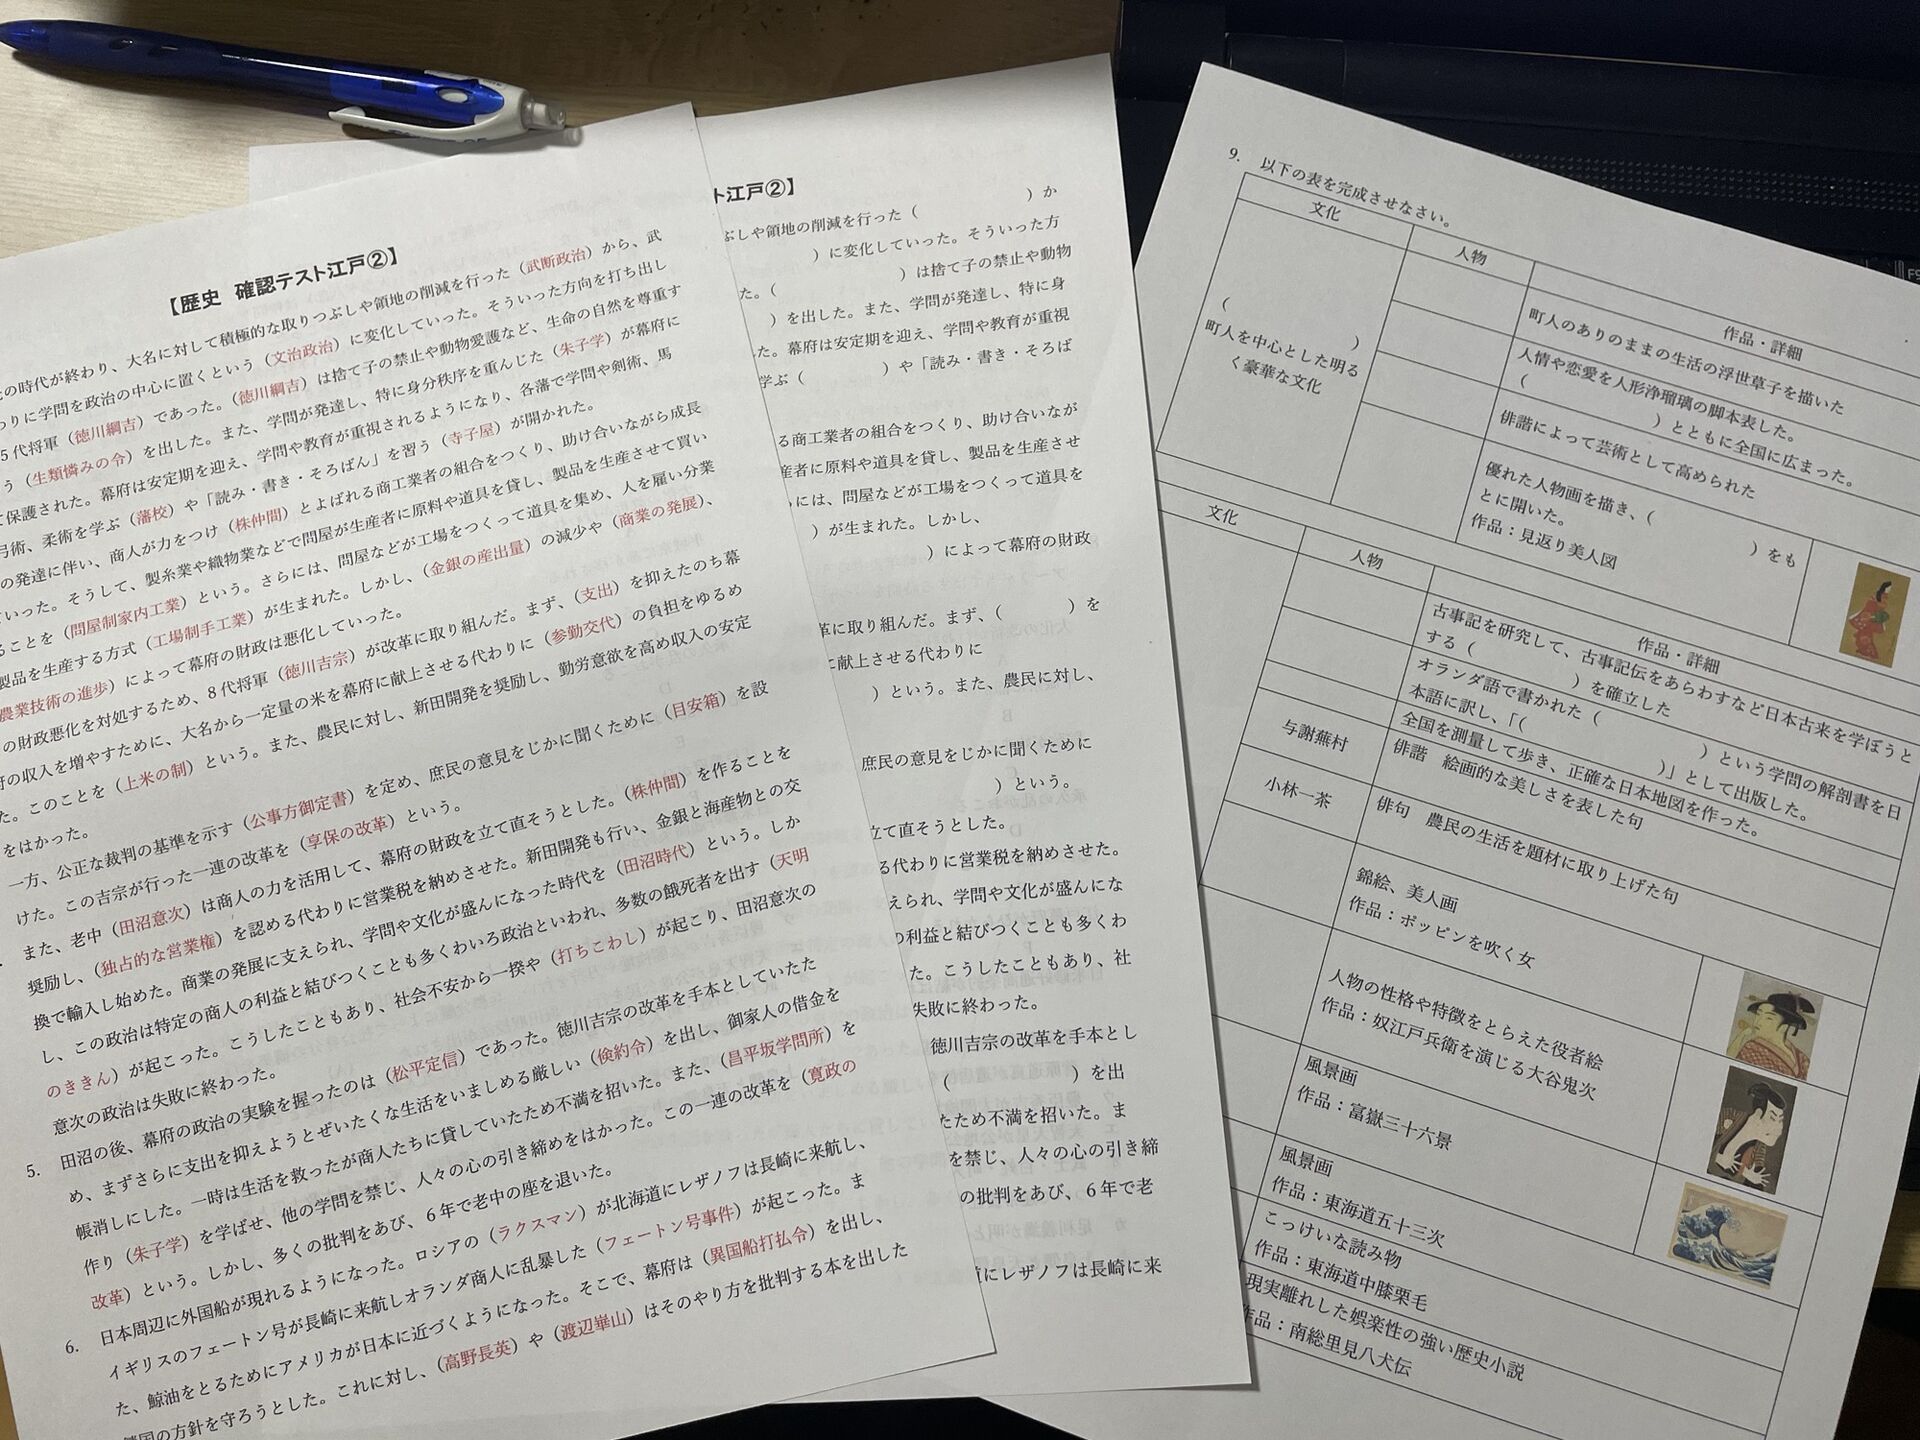 【歴史 確認テスト江戸②】
の時代が終わり、大名に対して積極的な取りつぶしや領地の削減を行った（武断政治）から、武
わりに学問を政治の中心に置くという（文治政治）に変化していった。そういった方向を打ち出し
5代将軍（徳川綱吉）であった。（徳川綱吉）は捨て子の禁止や動物愛護など、生命の自然を尊重す
う（生類憐みの令）を出した。また、学問が発達し、特に身分秩序を重んじた（朱子学）が幕府に
て保護された。幕府は安定期を迎え、学問や教育が重視されるようになり、各藩で学問や剣術、馬
弓術、柔術を学ぶ（藩校）や「読み・書き・そろばん」を習う（寺子屋）が開かれた。
の発達に伴い、商人が力をつけ（株仲間）とよばれる商工業者の組合をつくり、助け合いながら成長
ていった。そうして、製糸業や織物業などで問屋が生産者に原料や道具を貸し、製品を生産させて買い
ることを（問屋制家内工業）という。さらには、問屋などが工場をつくって道具を集め、人を雇い分業
製品を生産する方式（工場制手工業）が生まれた。しかし、（金銀の産出量）の減少や（商業の発展）、
農業技術の進歩）によって幕府の財政は悪化していった。
の財政悪化を対処するため、8代将軍（徳川吉宗）が改革に取り組んだ。まず、（支出）を抑えたのち幕
府の収入を増やすために、大名から一定量の米を幕府に献上させる代わりに（参勤交代）の負担をゆるめ
た。このことを（上米の制）という。また、農民に対し、新田開発を奨励し、勤労意欲を高め収入の安定
をはかった。
一方、公正な裁判の基準を示す（公事方御定書）を定め、庶民の意見をじかに聞くために（目安箱）を設
けた。この吉宗が行った一連の改革を（享保の改革）という。
また、老中（田沼意次）は商人の力を活用して、幕府の財政を立て直そうとした。（株仲間）を作ることを
奨励し、（独占的な営業権）を認める代わりに営業税を納めさせた。新田開発も行い、金銀と海産物との交
換で輸入し始めた。商業の発展に支えられ、学問や文化が盛んになった時代を（田沼時代）という。しか
し、この政治は特定の商人の利益と結びつくことも多くわいろ政治といわれ、多数の餓死者を出す（天明
のききん）が起こった。こうしたこともあり、社会不安から一揆や（打ちこわし）が起こり、田沼意次の
意次の政治は失敗に終わった。
5. 田沼の後、幕府の政治の実験を握ったのは（松平定信）であった。徳川吉宗の改革を手本としていたた
め、まずさらに支出を抑えようとぜいたくな生活をいましめる厳しい（倹約令）を出し、御家人の借金を
帳消しにした。一時は生活を救ったが商人たちに貸していたため不満を招いた。また、（昌平坂学問所）を
作り（朱子学）を学ばせ、他の学問を禁じ、人々の心の引き締めをはかった。この一連の改革を（寛政の
改革）という。しかし、多くの批判をあび、6年で老中の座を退いた。
6. 日本周辺に外国船が現れるようになった。ロシアの（ラクスマン）が北海道にレザノフは長崎に来航し、
イギリスのフェートン号が長崎に来航しオランダ商人に乱暴した（フェートン号事件）が起こった。ま
た、鯨油をとるためにアメリカが日本に近づくようになった。そこで、幕府は（異国船打払令）を出し、
鎖国の方針を守ろうとした。これに対し、（高野長英）や（渡辺崋山）はそのやり方を批判する本を出した
ト江戸②】
ぶしや領地の削減を行った（　　）か
）に変化していった。そういった方
た。（　　）は捨て子の禁止や動物
）を出した。また、学問が発達し、特に身
た。幕府は安定期を迎え、学問や教育が重視
学ぶ（　　）や「読み・書き・そろば
る商工業者の組合をつくり、助け合いなが
産者に原料や道具を貸し、製品を生産させ
らには、問屋などが工場をつくって道具を
）が生まれた。しかし、
）によって幕府の財政
革に取り組んだ。まず、（　　）を
に献上させる代わりに
）という。また、農民に対し、
庶民の意見をじかに聞くために
）という。
立て直そうとした。
る代わりに営業税を納めさせた。
えられ、学問や文化が盛んにな
の利益と結びつくことも多くわ
た。こうしたこともあり、社
失敗に終わった。
徳川吉宗の改革を手本とし
（　　）を出
たため不満を招いた。ま
を禁じ、人々の心の引き締
の批判をあび、6年で老
にレザノフは長崎に来
9. 以下の表を完成させなさい。
文化
人物
作品・詳細
（　　）
町人を中心とした明る
く豪華な文化
町人のありのままの生活の浮世草子を描いた
人情や恋愛を人形浄瑠璃の脚本表した。
（　　）とともに全国に広まった。
俳諧によって芸術として高められた
優れた人物画を描き、（　　）をも
とに開いた。
作品：見返り美人図
文化
人物
作品・詳細
古事記を研究して、古事記伝をあらわすなど日本古来を学ぼうと
する（　　）を確立した
オランダ語で書かれた（　　）という学問の解剖書を日
本語に訳し、「（　　）」として出版した。
全国を測量して歩き、正確な日本地図を作った。
与謝蕪村
俳諧　絵画的な美しさを表した句
小林一茶
俳句　農民の生活を題材に取り上げた句
錦絵、美人画
作品：ポッピンを吹く女
人物の性格や特徴をとらえた役者絵
作品：奴江戸兵衛を演じる大谷鬼次
風景画
作品：富嶽三十六景
風景画
作品：東海道五十三次
こっけいな読み物
作品：東海道中膝栗毛
現実離れした娯楽性の強い歴史小説
作品：南総里見八犬伝